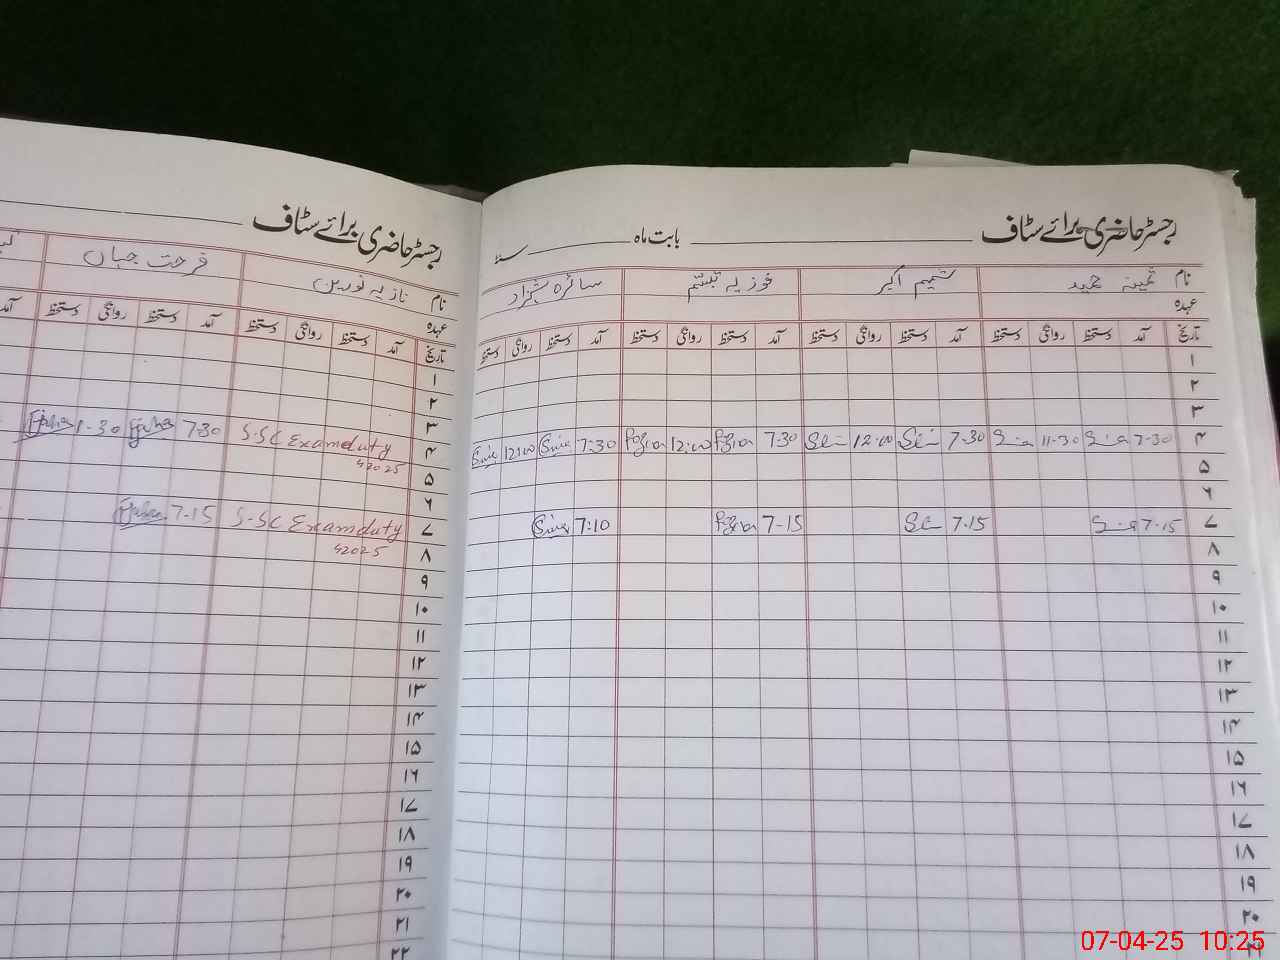 رجسٹر حاضری برائے سٹاف
بابت ماہ
سنہ
نام ثمینہ حمید شمیم اکبر فوزیہ تبسم سائرہ شہزاد
عہدہ
تاریخ آمد دستخط روانگی دستخط آمد دستخط روانگی دستخط آمد دستخط روانگی دستخط آمد دستخط روانگی دستخط
۱
۲
۳
۴ 7-30 11-30 7-30 12:00 7-30 12:00 7:30 12:00
۵
۶
۷ 7-15 7.15 7-15 7:10
۸
۹
۱۰
۱۱
۱۲
۱۳
۱۴
۱۵
۱۶
۱۷
۱۸
۱۹
۲۰
۲۱
رجسٹر حاضری برائے سٹاف
نام نازیہ نورین فرحت جہاں
عہدہ
تاریخ آمد دستخط روانگی دستخط آمد دستخط روانگی دستخط آمد
۱
۲
۳
۴ S.SC Exam duty 7.30 1-30
42025
۵
۶
۷ S-SC Exam duty 7-15
42025
۸
۹
۱۰
۱۱
۱۲
۱۳
۱۴
۱۵
۱۶
۱۷
۱۸
۱۹
۲۰
۲۱
۲۲
07-04-25 10:25